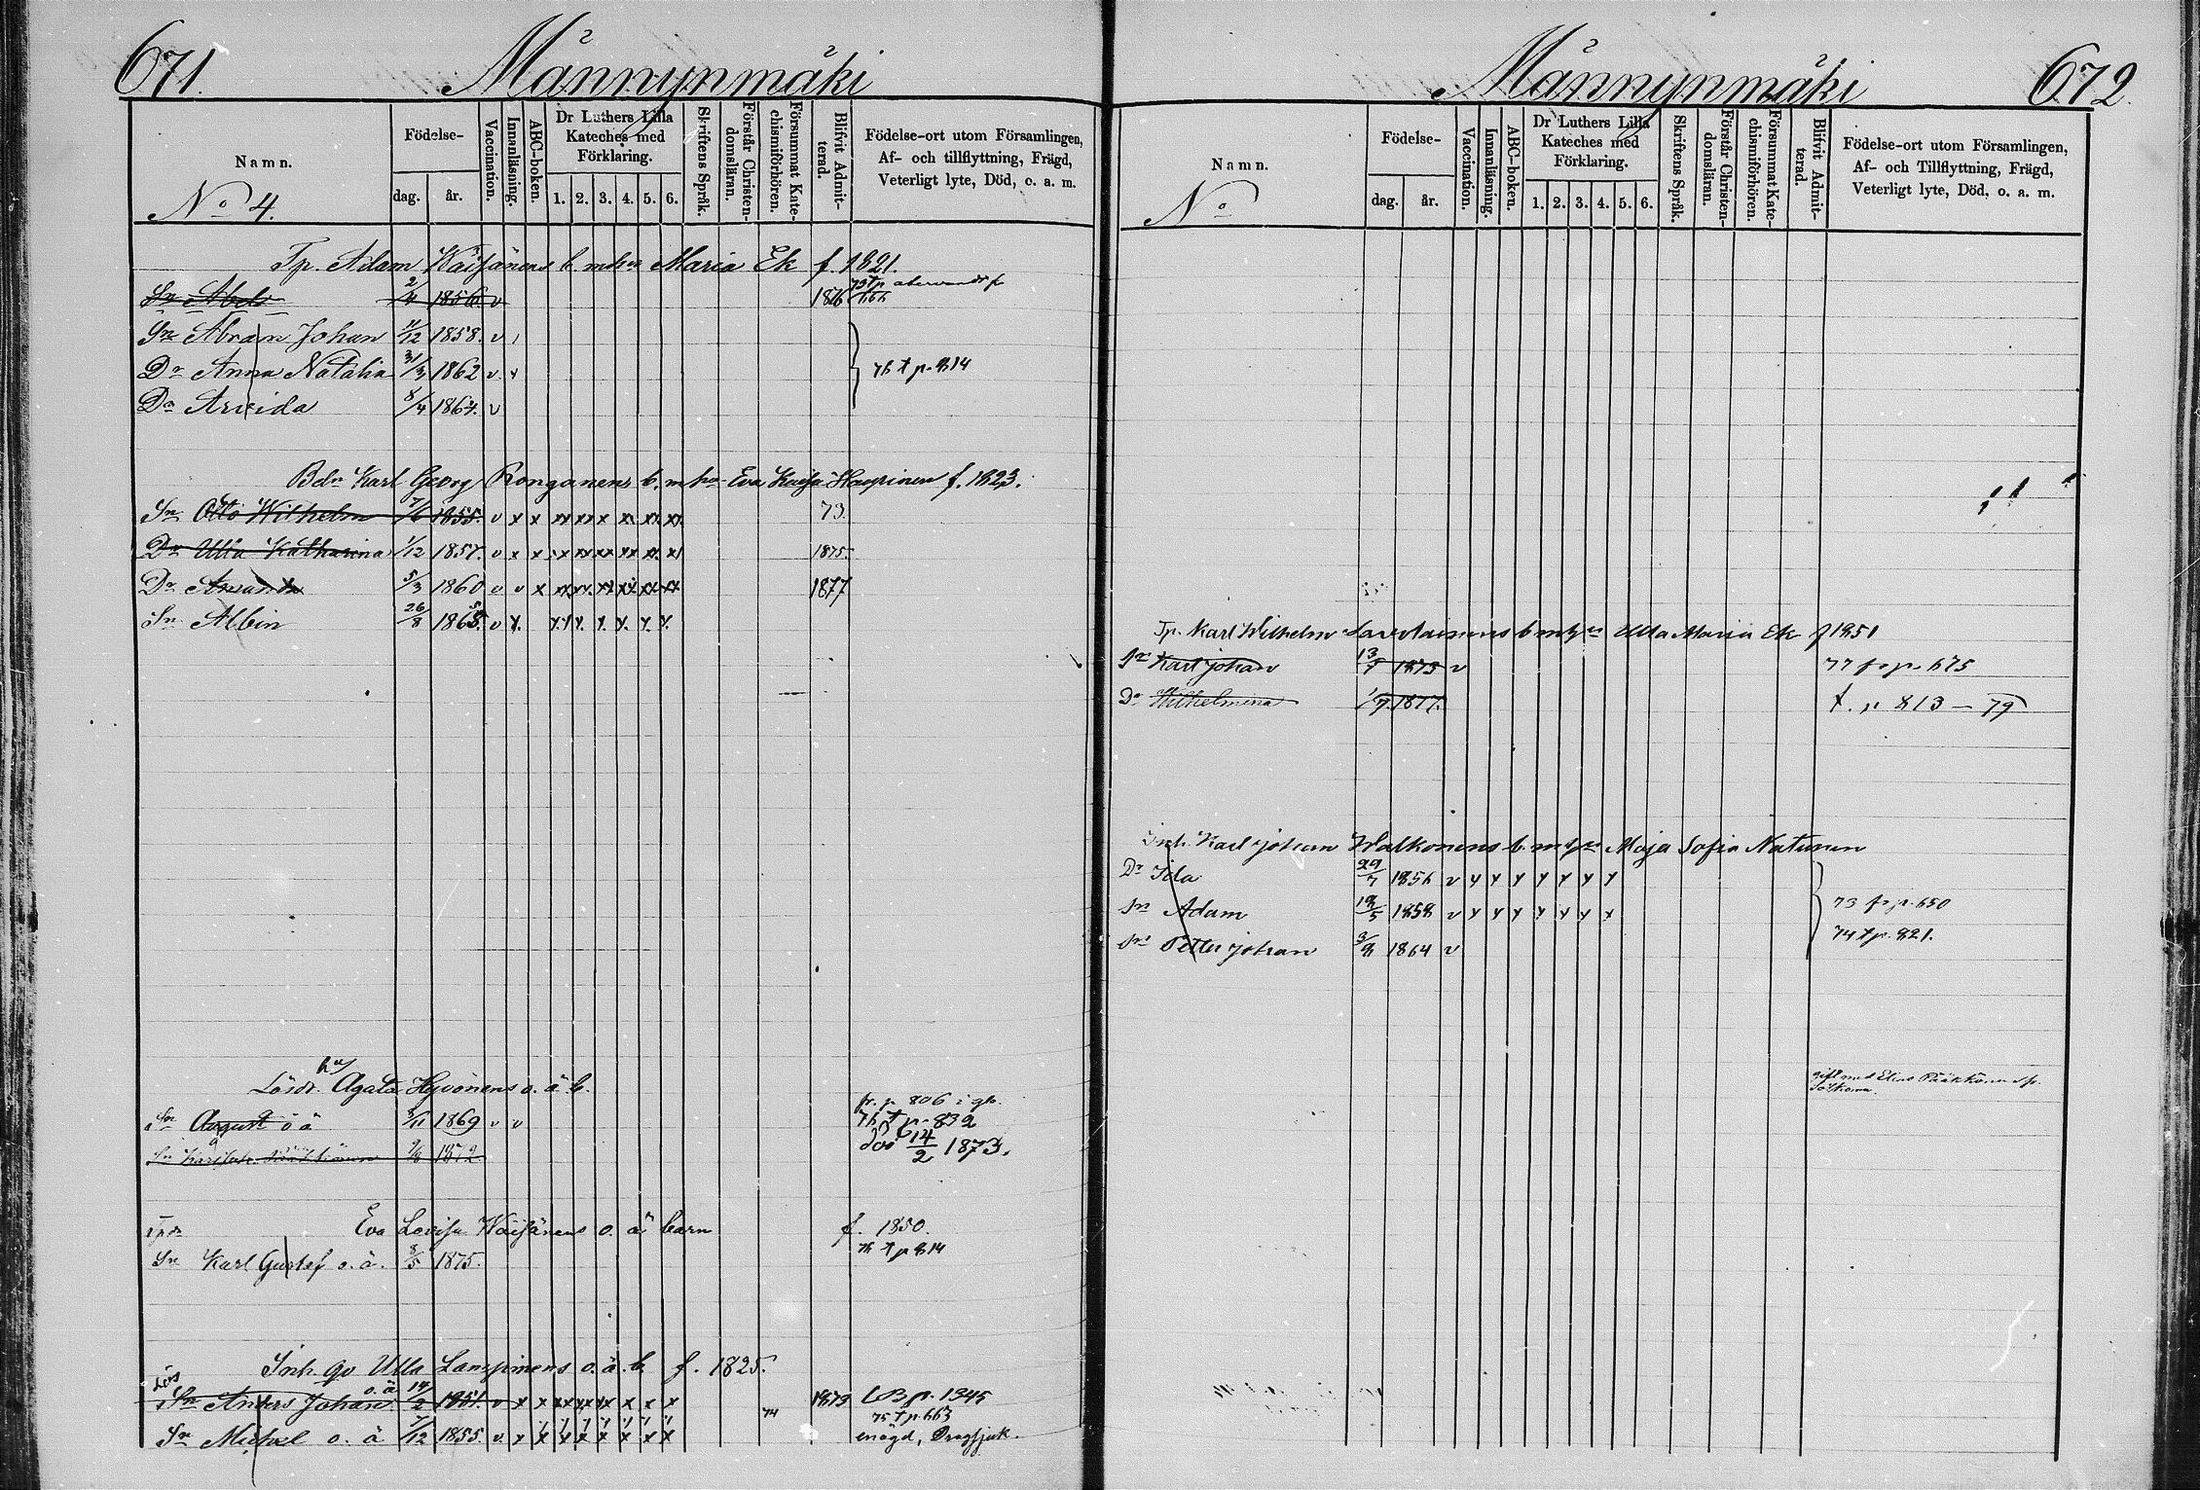 671.
Männynmäki
Namn.
No 4.
Födelse-
dag.
år.
Vaccination.
Innanläsning.
ABC-boken.
Dr Luthers Lilla Kateches med Förklaring.
1. 2. 3. 4. 5. 6.
Skriftens Språk.
Förstår Christendomsläran.
Försummat Katechismiförhören.
Blifvit Admitterad.
Födelse-ort utom Församlingen,
Af- och tillflyttning, Frägd,
Veterligt lyte, Död, o. a. m.
Tp. Adam Wäisänens b. m hu Maria Ek f. 1821.
Sn Abel 2/4 1856 v 1876
Sn Abram Johan 11/12 1858. v
Dr Anna Natalia 31/3 1862 v. 76 t p. 814
Dr Arvida 8/4 1867. v
Bdn Karl Georg Ronganens b. m hu Eva Kaisa Haapinen f. 1823.
Sn Otto Wilhelm 7/6 1855. v x x xx xx x xx xx xx 79.
Dr Ulla Katharina 1/12 1857. v x x xx xx xx xx x 1875.
Dr Amanda 5/3 1860 v v x xx xx xx xx xx xx 1877
Sn Albin 26/8 1865. v
Lösdr Agata Hyvönens o. ä. b.
fr. p 806 i gb.
Sn August o ä 1869 v v 76 t p. 832
Sn 1872. död 14/2 1873.
Eva Lovisa Wäisänens o. ä barn f. 1850.
Sn Karl Gustaf o. ä. 8/5 1875. 76 t p 814
Inh. qv Ulla o. ä. b f. 1825.
Sn Anders Johan o. ä 17/2 1851. v x x xx xx xx x x x 1879 LB p. 1345
74 75 t p. 663
Sn Michel o. ä 7/12 1855. v. x x x x x x x x enögd, Dragsjuk.
Männynmäki
672.
Namn.
No
Födelse-
dag.
år.
Vaccination.
Innanläsning.
ABC-boken.
Dr Luthers Lilla Kateches med Förklaring.
1. 2. 3. 4. 5. 6.
Skriftens Språk.
Förstår Christendomsläran.
Försummat Katechismiförhören.
Blifvit Admitterad.
Födelse-ort utom Församlingen,
Af- och Tillflyttning, Frägd,
Veterligt lyte, Död, o. a. m.
Tp. Karl Wilhelm b m hu Ulla Maria Ek f 1851
Sn Karl Johan 13/7 1875 v 77 fr p. 675
Dr Wilhelmina 1/7. 1877. t. p 813 - 79
Inh. Karl Johan Walkonens b. m hu Maja Sofia Natunen
Dr Ida 29/7 1856 v x x x x x x x
Sn Adam 18/5 1858 v x x x x x x x 73 fr p. 650
74 t p. 821.
Sn Petter Johan 3/8 1864 v
gift med Elias Pääkkönen